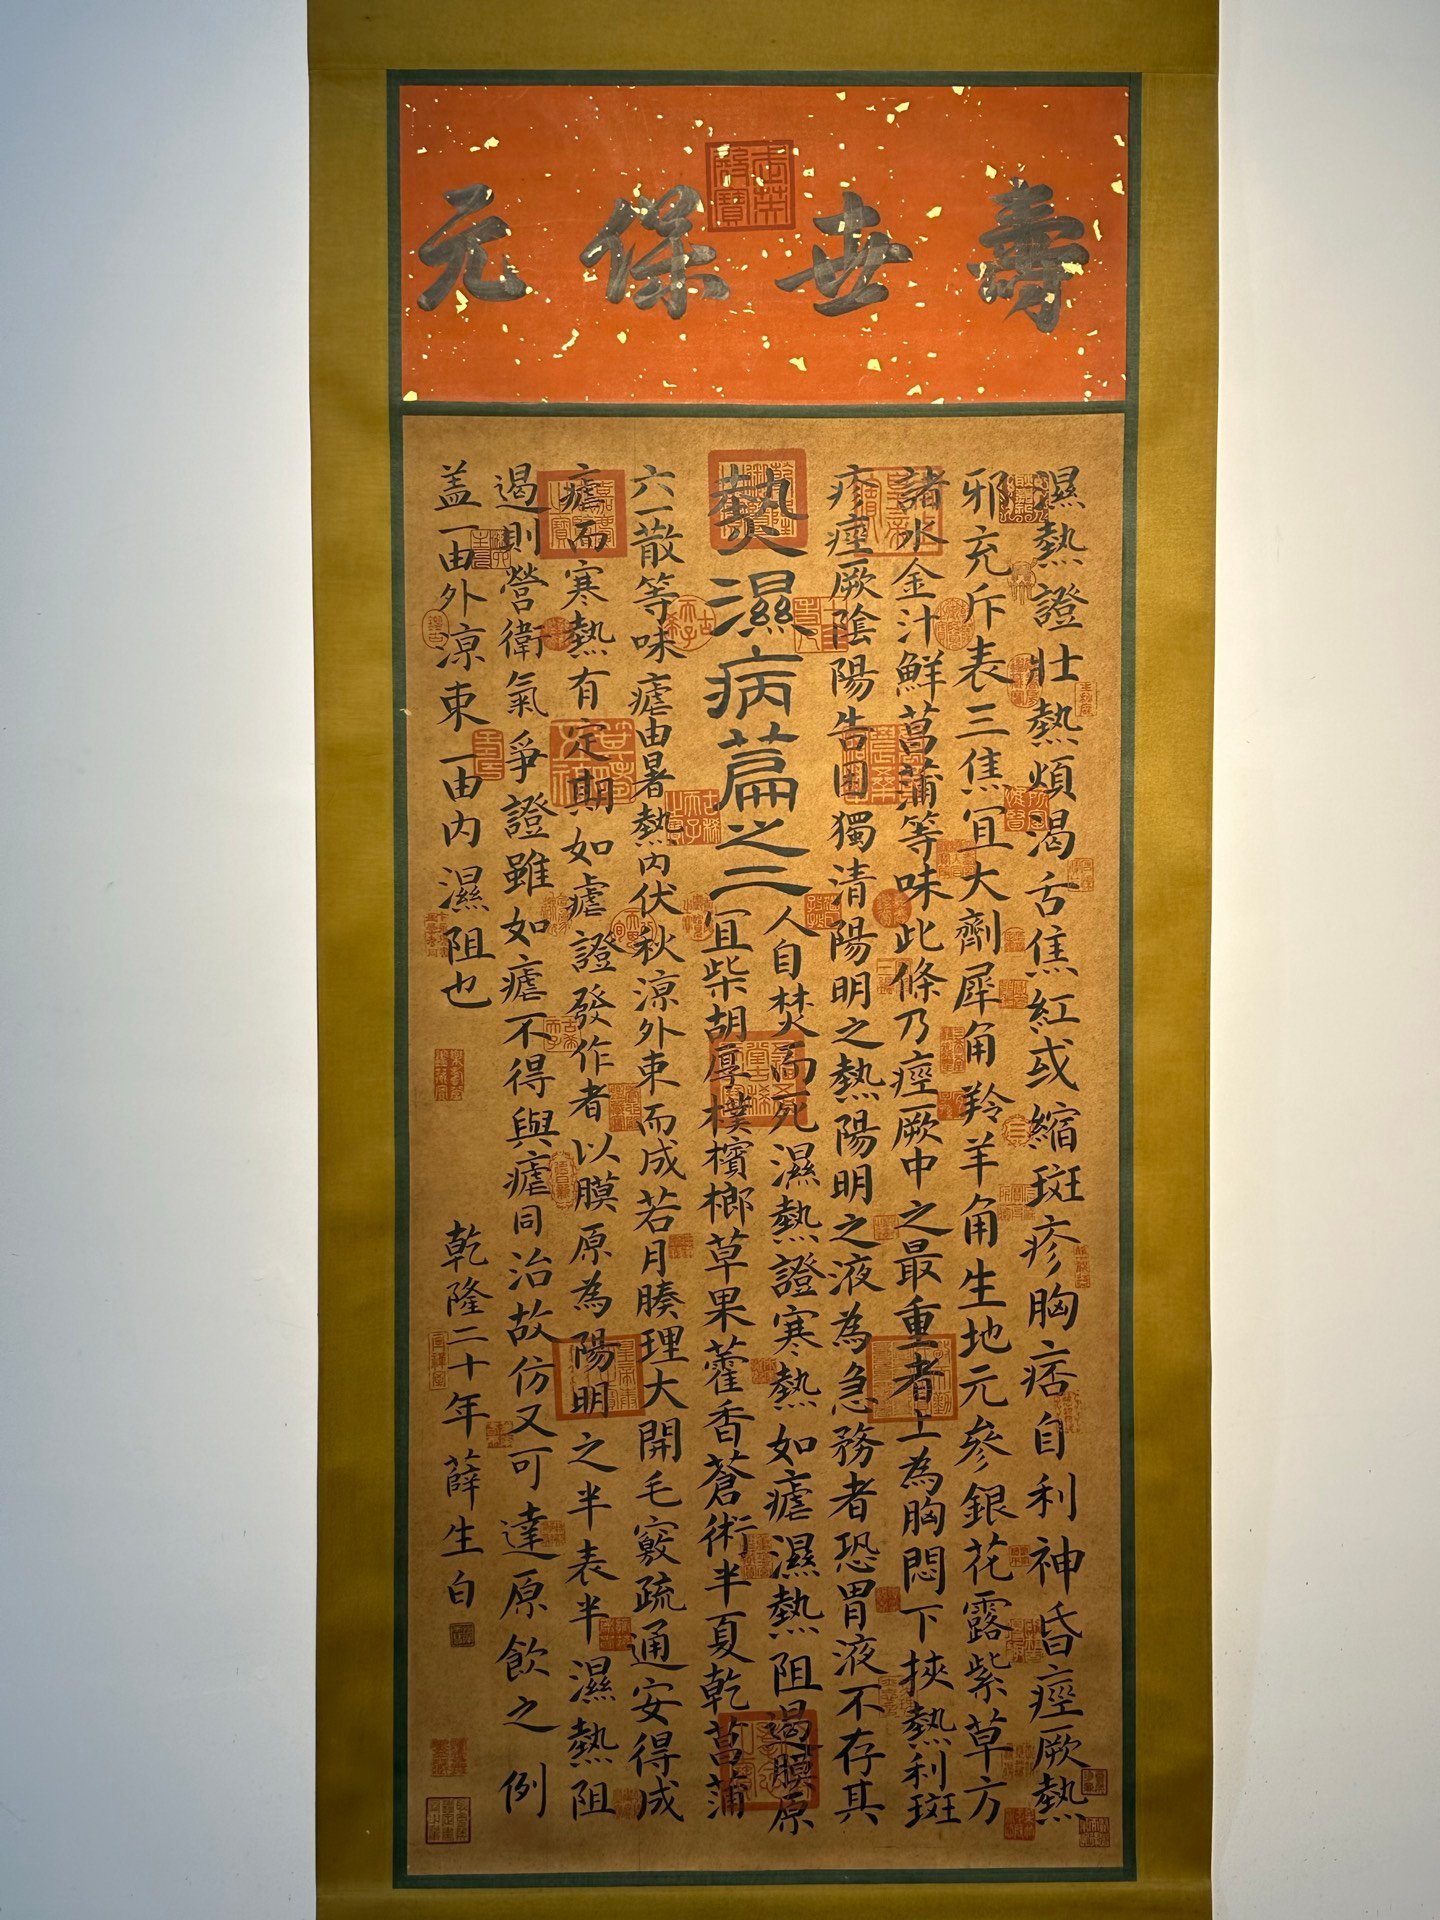 壽世保元
武英殿寶
濕熱證壯熱煩渴舌焦紅或縮斑疹胸痞自利神昏痙厥熱
邪充斥表三焦宜大劑犀角羚羊角生地元參銀花露紫草方
諸水金汁鮮菖蒲等味此條乃痙厥中之最重者上為胸悶下挾熱利斑
疹痙厥陰陽告困獨清陽明之熱陽明之液為急務者恐胃液不存其
熱濕病篇之二
人自焚而死濕熱證寒熱如瘧濕熱阻遏膜原
宜柴胡厚樸檳榔草果藿香蒼術半夏乾菖蒲
六一散等味瘧由暑熱內伏秋凉外束而成若月腠理大開毛竅疏通安得成
瘧而寒熱有定期如虐證發作者以膜原為陽明之半表半濕熱阻
遏則營衛氣爭證雖如瘧不得與瘧同治故仿又可達原飲之例
盖一由外凉束一由內濕阻也
乾隆二十年薛生白
古希天子